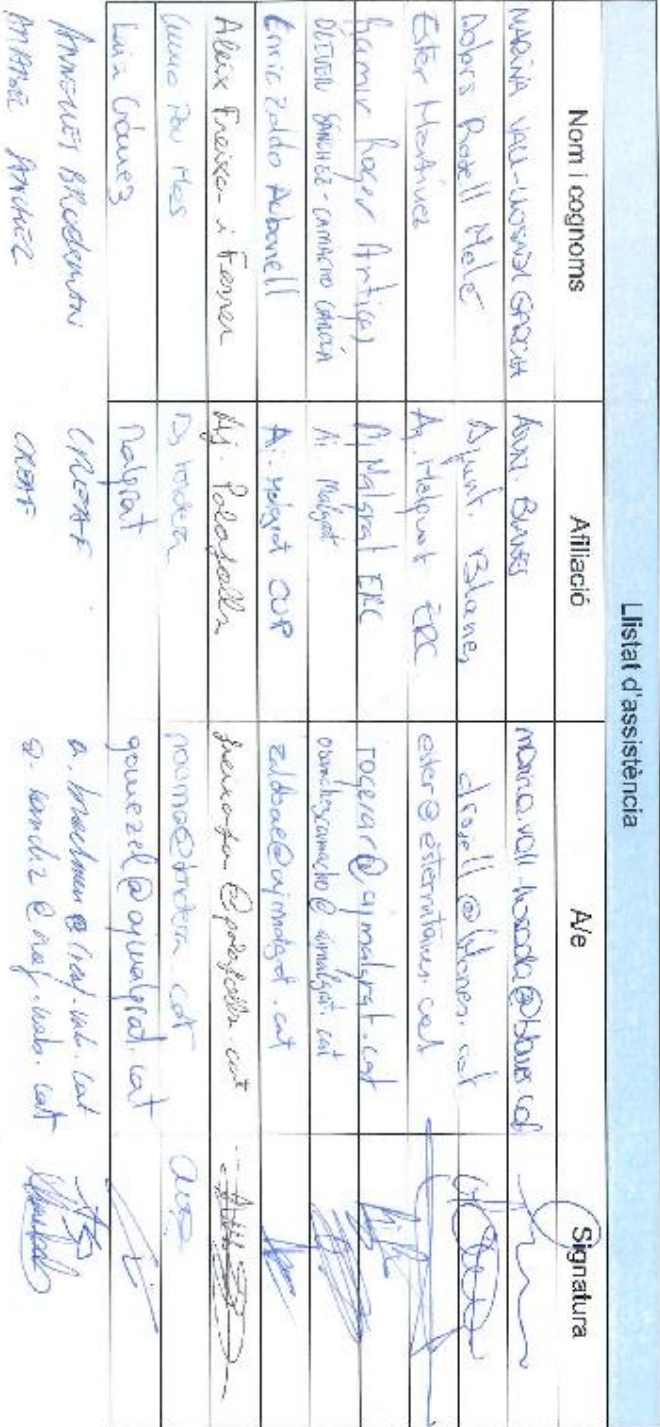 Llistat d'assistència
Nom i cognoms Afiliació A/e Signatura
MARINA VALL-LLOSADA GARCIA Ajunt. BLANES marina.vall-llosada@blanes.cat
Dolors Rosell Melé Ajunt. Blanes drosell@blanes.cat
Ester Martínez Aj. Malgrat ERC ester@estermtnez.cat
Ramir Roger Artigas Aj Malgrat ERC rogerar@ajmalgrat.cat
SÁNCHEZ-CAMACHO GARCÍA Aj. Malgrat osanchezcamacho@ajmalgrat.cat
Enric Zaldo Aubanell Aj. Malgrat CUP zaldoae@ajmalgrat.cat
Aleix Freixa i Ferrer Aj. Palafolls @palafolls.cat
Pou Mas Aj Tordera pouma@tordera.cat
Luis Gómez Malgrat gomezel@ajmalgrat.cat
CREAF
SANCHEZ CREAF